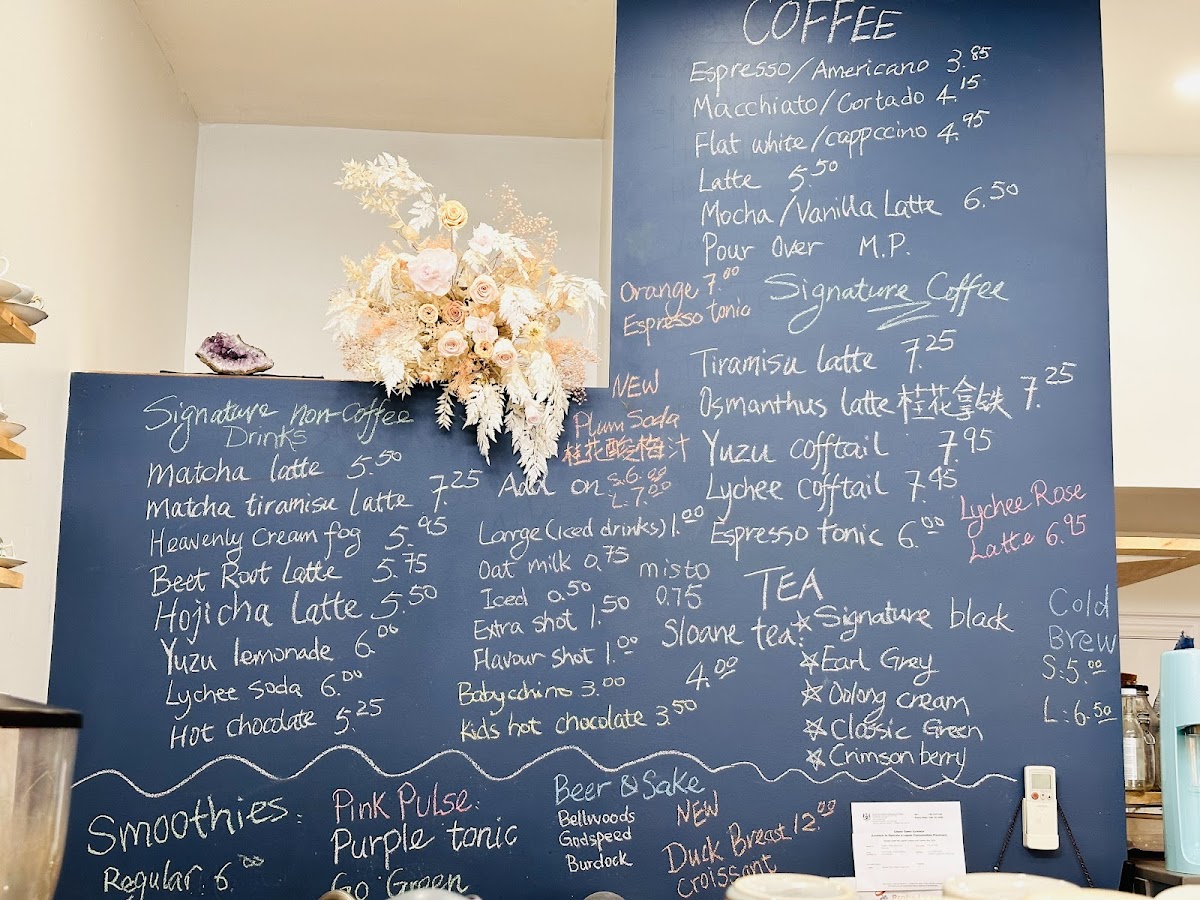 COFFEE
Espresso/Americano 3.85
Macchiato/Cortado 4.15
Flat white/cappccino 4.95
Latte 5.50
Mocha/Vanilla Latte 6.50
Pour Over M.P.
Orange 7.00
Espresso tonic
Signature Coffee
Tiramisu latte 7.25
Osmanthus latte 桂花拿铁 7.25
Yuzu cofftail 7.95
Lychee cofftail 7.95
Espresso tonic 6.00
Lychee Rose
Latte 6.95
NEW
Plum Soda
桂花酸梅汁
S.6.00
L.7.00
Signature non-Coffee
Drinks
Matcha latte 5.50
Matcha tiramisu latte 7.25
Heavenly Cream fog 5.95
Beet Root Latte 5.75
Hojicha Latte 5.50
Yuzu lemonade 6.00
Lychee soda 6.00
Hot chocolate 5.25
Add on
Large (iced drinks) 1.00
Oat milk 0.75
Iced 0.50
Extra shot 1.50
Flavour shot 1.00
Babycchino 3.00
Kids hot chocolate 3.50
misto
0.75
TEA
Sloane tea:
4.00
Signature black
Earl Grey
Oolong cream
Classic Green
Crimson berry
Cold
Brew
S:5.00
L:6.50
Smoothies:
Regular 6.00
Pink Pulse:
Purple tonic
Go Green
Beer & Sake
Bellwoods
Godspeed
Burdock
NEW
Duck Breast 12.00
croissant